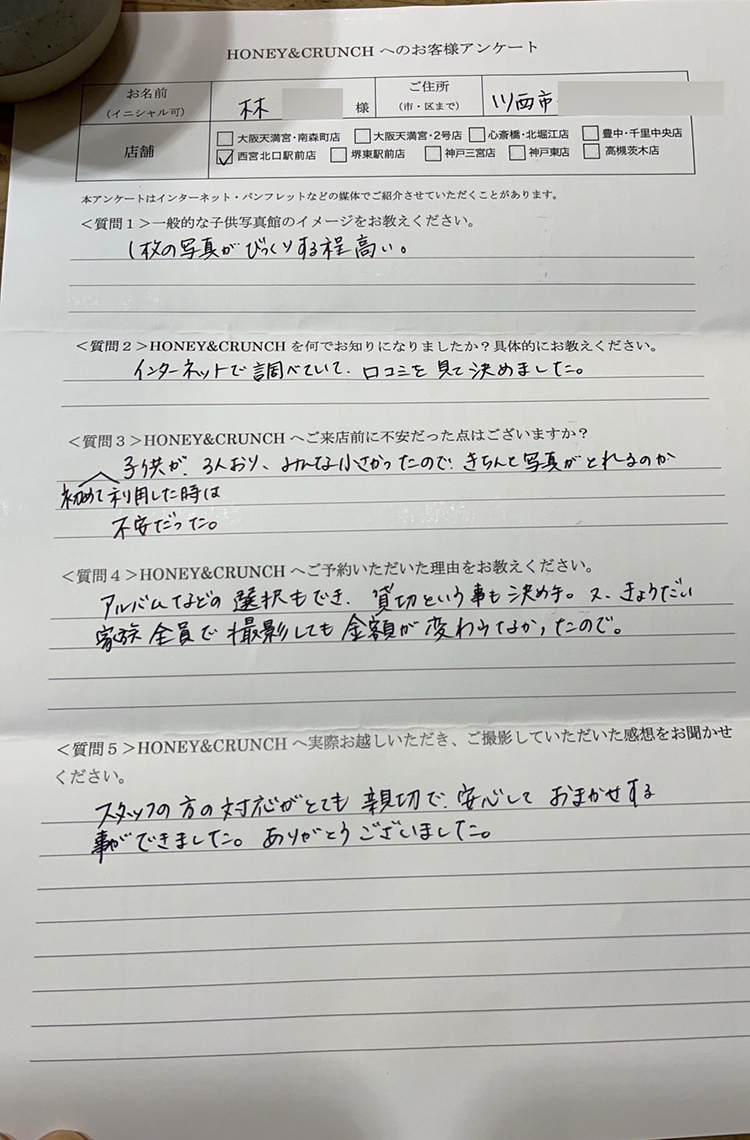 HONEY&CRUNCH へのお客様アンケート
お名前
(イニシャル可)
林 様
ご住所
(市・区まで)
川西市
店舗
□大阪天満宮・南森町店 □大阪天満宮・2号店 □心斎橋・北堀江店 □豊中・千里中央店
☑西宮北口駅前店 □堺東駅前店 □神戸三宮店 □神戸東店 □高槻茨木店
本アンケートはインターネット・パンフレットなどの媒体でご紹介させていただくことがあります。
<質問1>一般的な子供写真館のイメージをお教えください。
1枚の写真がびっくりする程高い。
<質問2>HONEY&CRUNCH を何でお知りになりましたか?具体的にお教えください。
インターネットで調べていて、口コミを見て決めました。
<質問3>HONEY&CRUNCH へご来店前に不安だった点はございますか?
子供が、3人おり、みんな小さかったので、きちんと写真がとれるのか
初めて利用した時は
不安だった。
<質問4>HONEY&CRUNCH へご予約いただいた理由をお教えください。
アルバムなどの選択もでき、貸切という事も決め手。又、きょうだい
家族全員で撮影しても金額が変わらなかったので。
<質問5>HONEY&CRUNCH へ実際お越しいただき、ご撮影していただいた感想をお聞かせ
ください。
スタッフの方の対応がとても親切で、安心しておまかせする
事ができました。ありがとうございました。